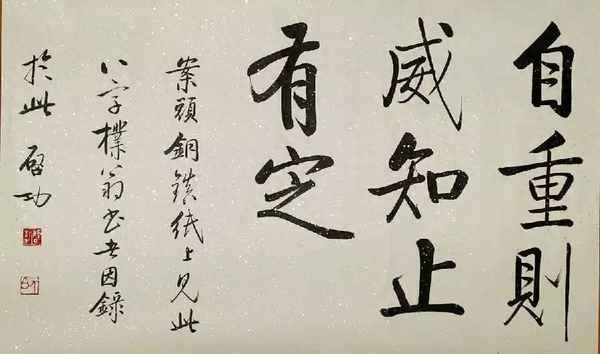 自重則
威知止
有定
案頭銅鎮紙上見此
八字樸翁書者因錄
於此 啓功